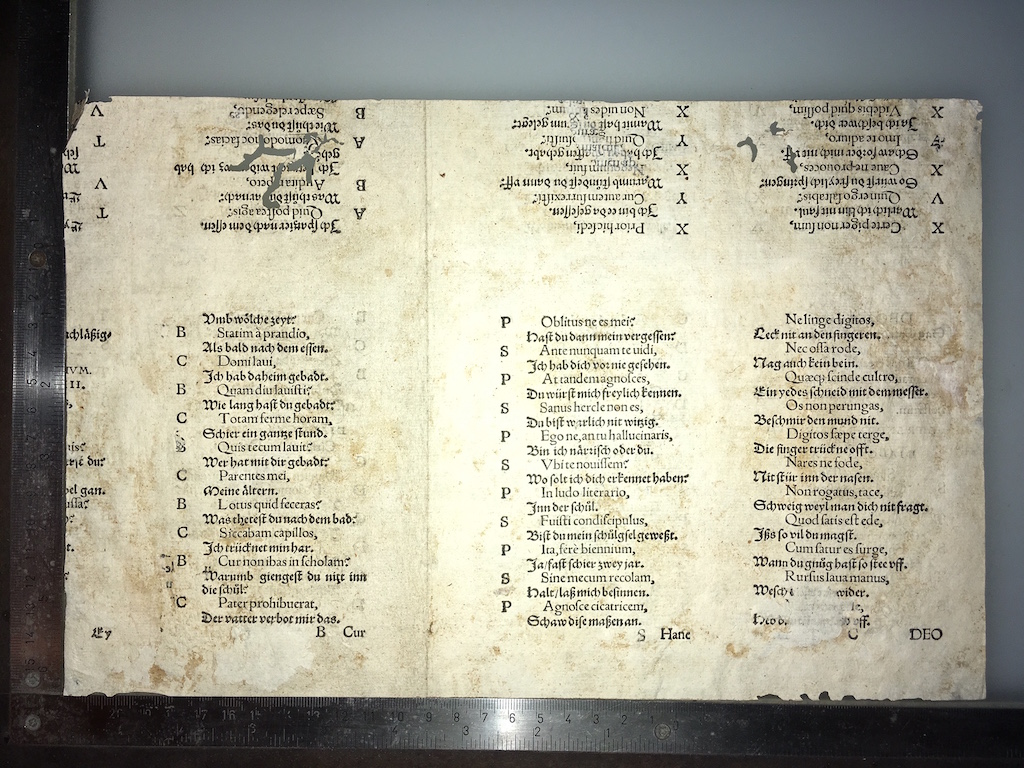 X Certe piger non sum,
Warlich ich bin nit faul.
V Quin ergo saltabis?
So würst du freylich springen.
X Caue ne prouoces,
Schaw forder mich nit.
Imo te adiuro,
Ja ich beschwer dich.
X Videbis quid possim,
X Prior hic sedi,
Ich bin ee da gesessen.
Y Cur autem surrexisti?
Warumm stündest du dann uff?
X
Ich hab
Y
X Non uides
Ich spazier nach dem essen.
A Quid postea agis?
Was thůst du darnach?
B Audita repeto,
wider was ich hab
A Quomodo hoc facias?
Wie thůst du das?
B Sæpe relegendo,
T
V
T
V
achläßig.
IVM.
II.
du?
gan.
t.
Ey
Vmb wölche zeyt?
B Statim à prandio,
Als bald nach dem essen.
C Domi laui,
Jch hab daheim gebadt.
B Quam diu lauisti?
Wie lang hast du gebadt?
C Totam ferme horam,
Schier ein gantze stund.
B Quis tecum lauit?
Wer hat mit dir gebadt?
C Parentes mei,
Meine ältern.
B Lotus quid feceras?
Was thetest du nach dem bad?
C Siccabam capillos,
Jch trücknet min har.
B Cur non ibas in scholam?
Warumb giengest du nitt inn
die schül?
C Pater prohibuerat,
Der vatter verbot mir das.
B Cur
P Oblitus ne es mei?
Hast du dann mein vergessen?
S Ante nunquam te uidi,
Jch hab dich vor nie gesehen.
P At tandem agnosces,
Du würst mich freylich kennen.
S Sanus hercle non es,
Du bist warlich nit witzig.
P Ego ne, an tu hallucinaris,
Bin ich närrisch oder du.
S Vbi te nouissem?
Wo solt ich dich erkennet haben?
P In ludo literario,
Jnn der schül.
S Fuisti condiscipulus,
Bist du mein schülgsel gewest.
P Ita, ferè biennium,
Ja/fast schier zwey jar.
S Sine mecum recolam,
Halt/laß mich besinnen.
P Agnosce cicatricem,
Schaw dise maßen an.
S Hanc
Ne linge digitos,
Leck nit an den fingeren.
Nec ossa rode,
Nag auch kein bein.
Quæq; scinde cultro,
Ein yedes schneid mit dem messer.
Os non perungas,
Beschmir den mund nit.
Digitos sæpe terge,
Die finger trückne offt.
Nares ne fode,
Nit stür inn der nasen.
Non rogatus, tace,
Schweig weyl man dich nit fragt.
Quod satis est ede,
Jßs so vil du magst.
Cum satur es surge,
Wann du gnüg hast so stee vff.
Rursus laua manus,
wider.
vff.
C DEO